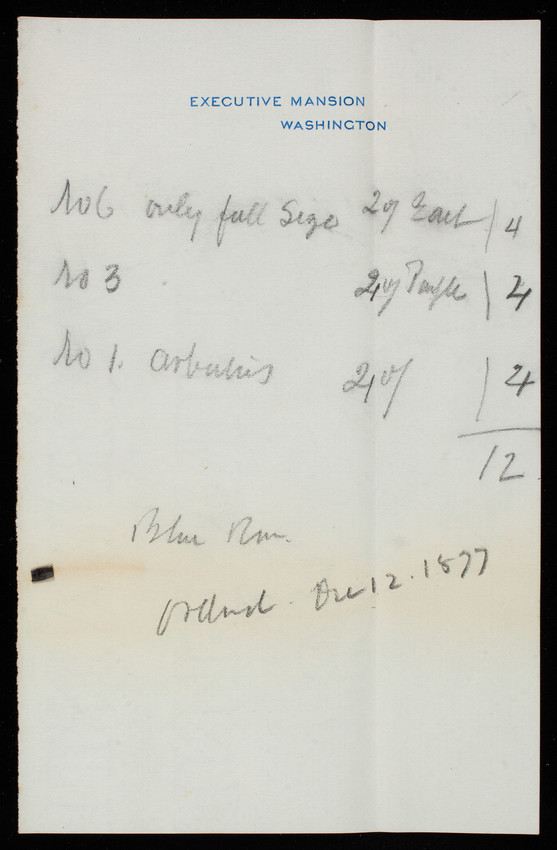 EXECUTIVE MANSION
WASHINGTON
No 6 only full Size 2 of Each 4
No 3 2 of Purple 4
No 1. Arbutus 2 of 4
12
Blue Rm.
Ordered. Dec 12. 1877